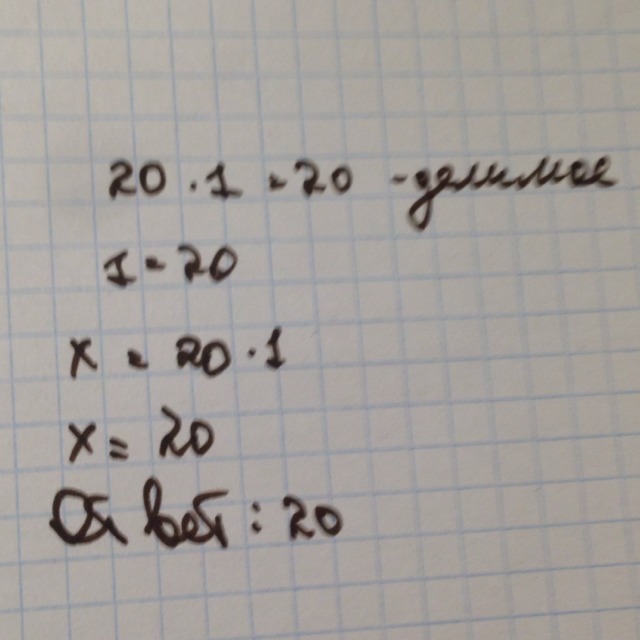 20 · 1 = 20 - делимое
1 - 20
x = 20 · 1
x = 20
Ответ : 20